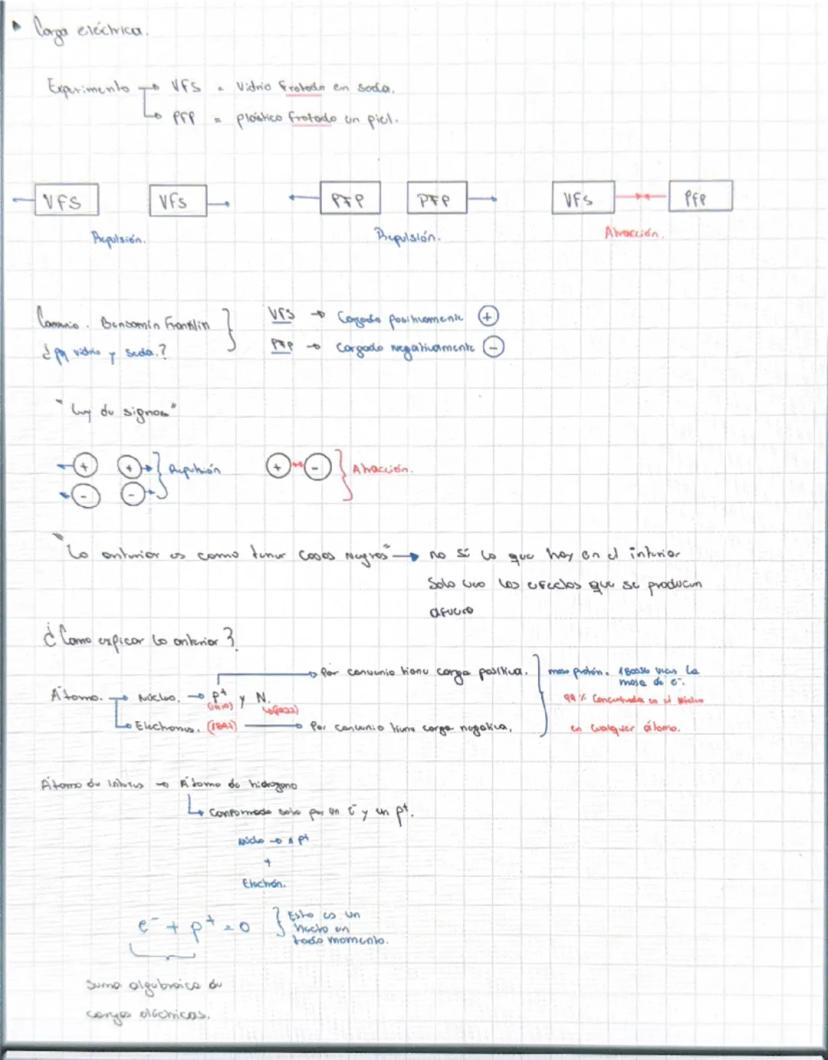 Carga eléctrica.
Experimento → VFS = Vidrio frotado en seda.
→ PFP = plástico frotado en piel.
VFS VFS PFP PFP VFS PFP
Repulsión. Repulsión. Atracción.
Convenio. Benjamin Franklin } VFS → Cargado positivamente (+)
¿pq vidrio y seda? PFP → Cargado negativamente (-)
"Ley de signos"
+ + } Repulsión + - } Atracción.
- -
"Lo anterior es como tener cajas negras" → no sé lo que hay en el interior
Solo veo los efectos que se producen
afuera
¿Como explicar lo anterior?
→ Por convenio tiene carga positiva. masa protón. veces la
masa de e⁻.
Átomo. → Núcleo. → P⁺ y N. 99% Concentrada en el Núcleo
→ Electrones. → Por convenio tiene carga negativa. en cualquier átomo.
Átomo de interés → Átomo de hidrógeno
→ Conformado solo por un e⁻ y un p⁺.
Núcleo → 1 p⁺
+
Electrón.
e⁻ + p⁺ = 0 } Esto es un
hecho en
todo momento.
Suma algebraica de
cargas eléctricas.